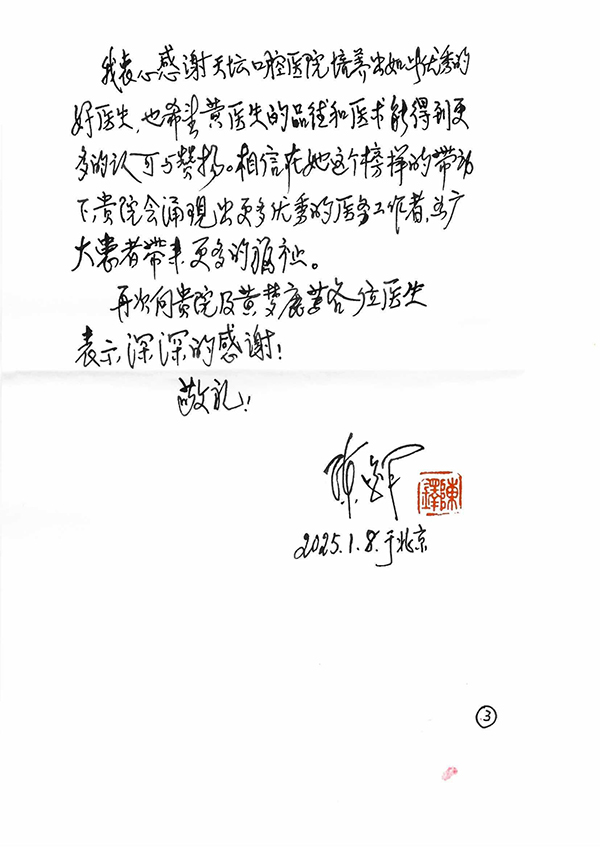 我衷心感谢天坛口腔医院培养出如此优秀的
好医生，也希望黄医生的品德和医术能得到更
多的认可与赞扬。相信在她这个榜样的带动
下贵院会涌现出更多优秀的医务工作者，为广
大患者带来更多的福祉。
再次向贵院及黄梦鹿等各位医生
表示深深的感谢！
敬礼！
陈
陳鐸
2025.1.8.于北京
3